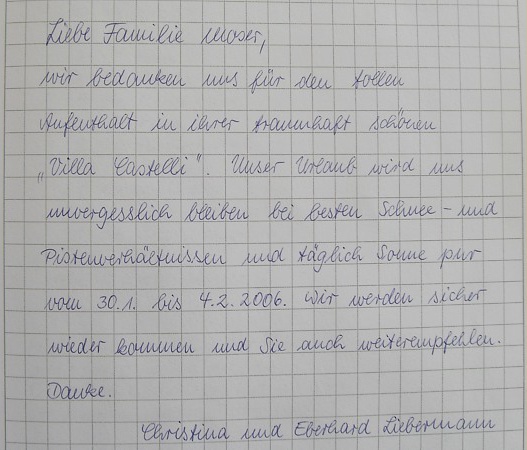 Liebe Familie Moser,
wir bedanken uns für den tollen
Aufenthalt in ihrer traumhaft schönen
„Villa Castelli". Unser Urlaub wird uns
unvergesslich bleiben bei besten Schnee - und
Pistenverhältnissen und täglich Sonne pur
vom 30.1. bis 4.2.2006. Wir werden sicher
wieder kommen und Sie auch weiterempfehlen.
Danke.
Christina und Eberhard Liebermann